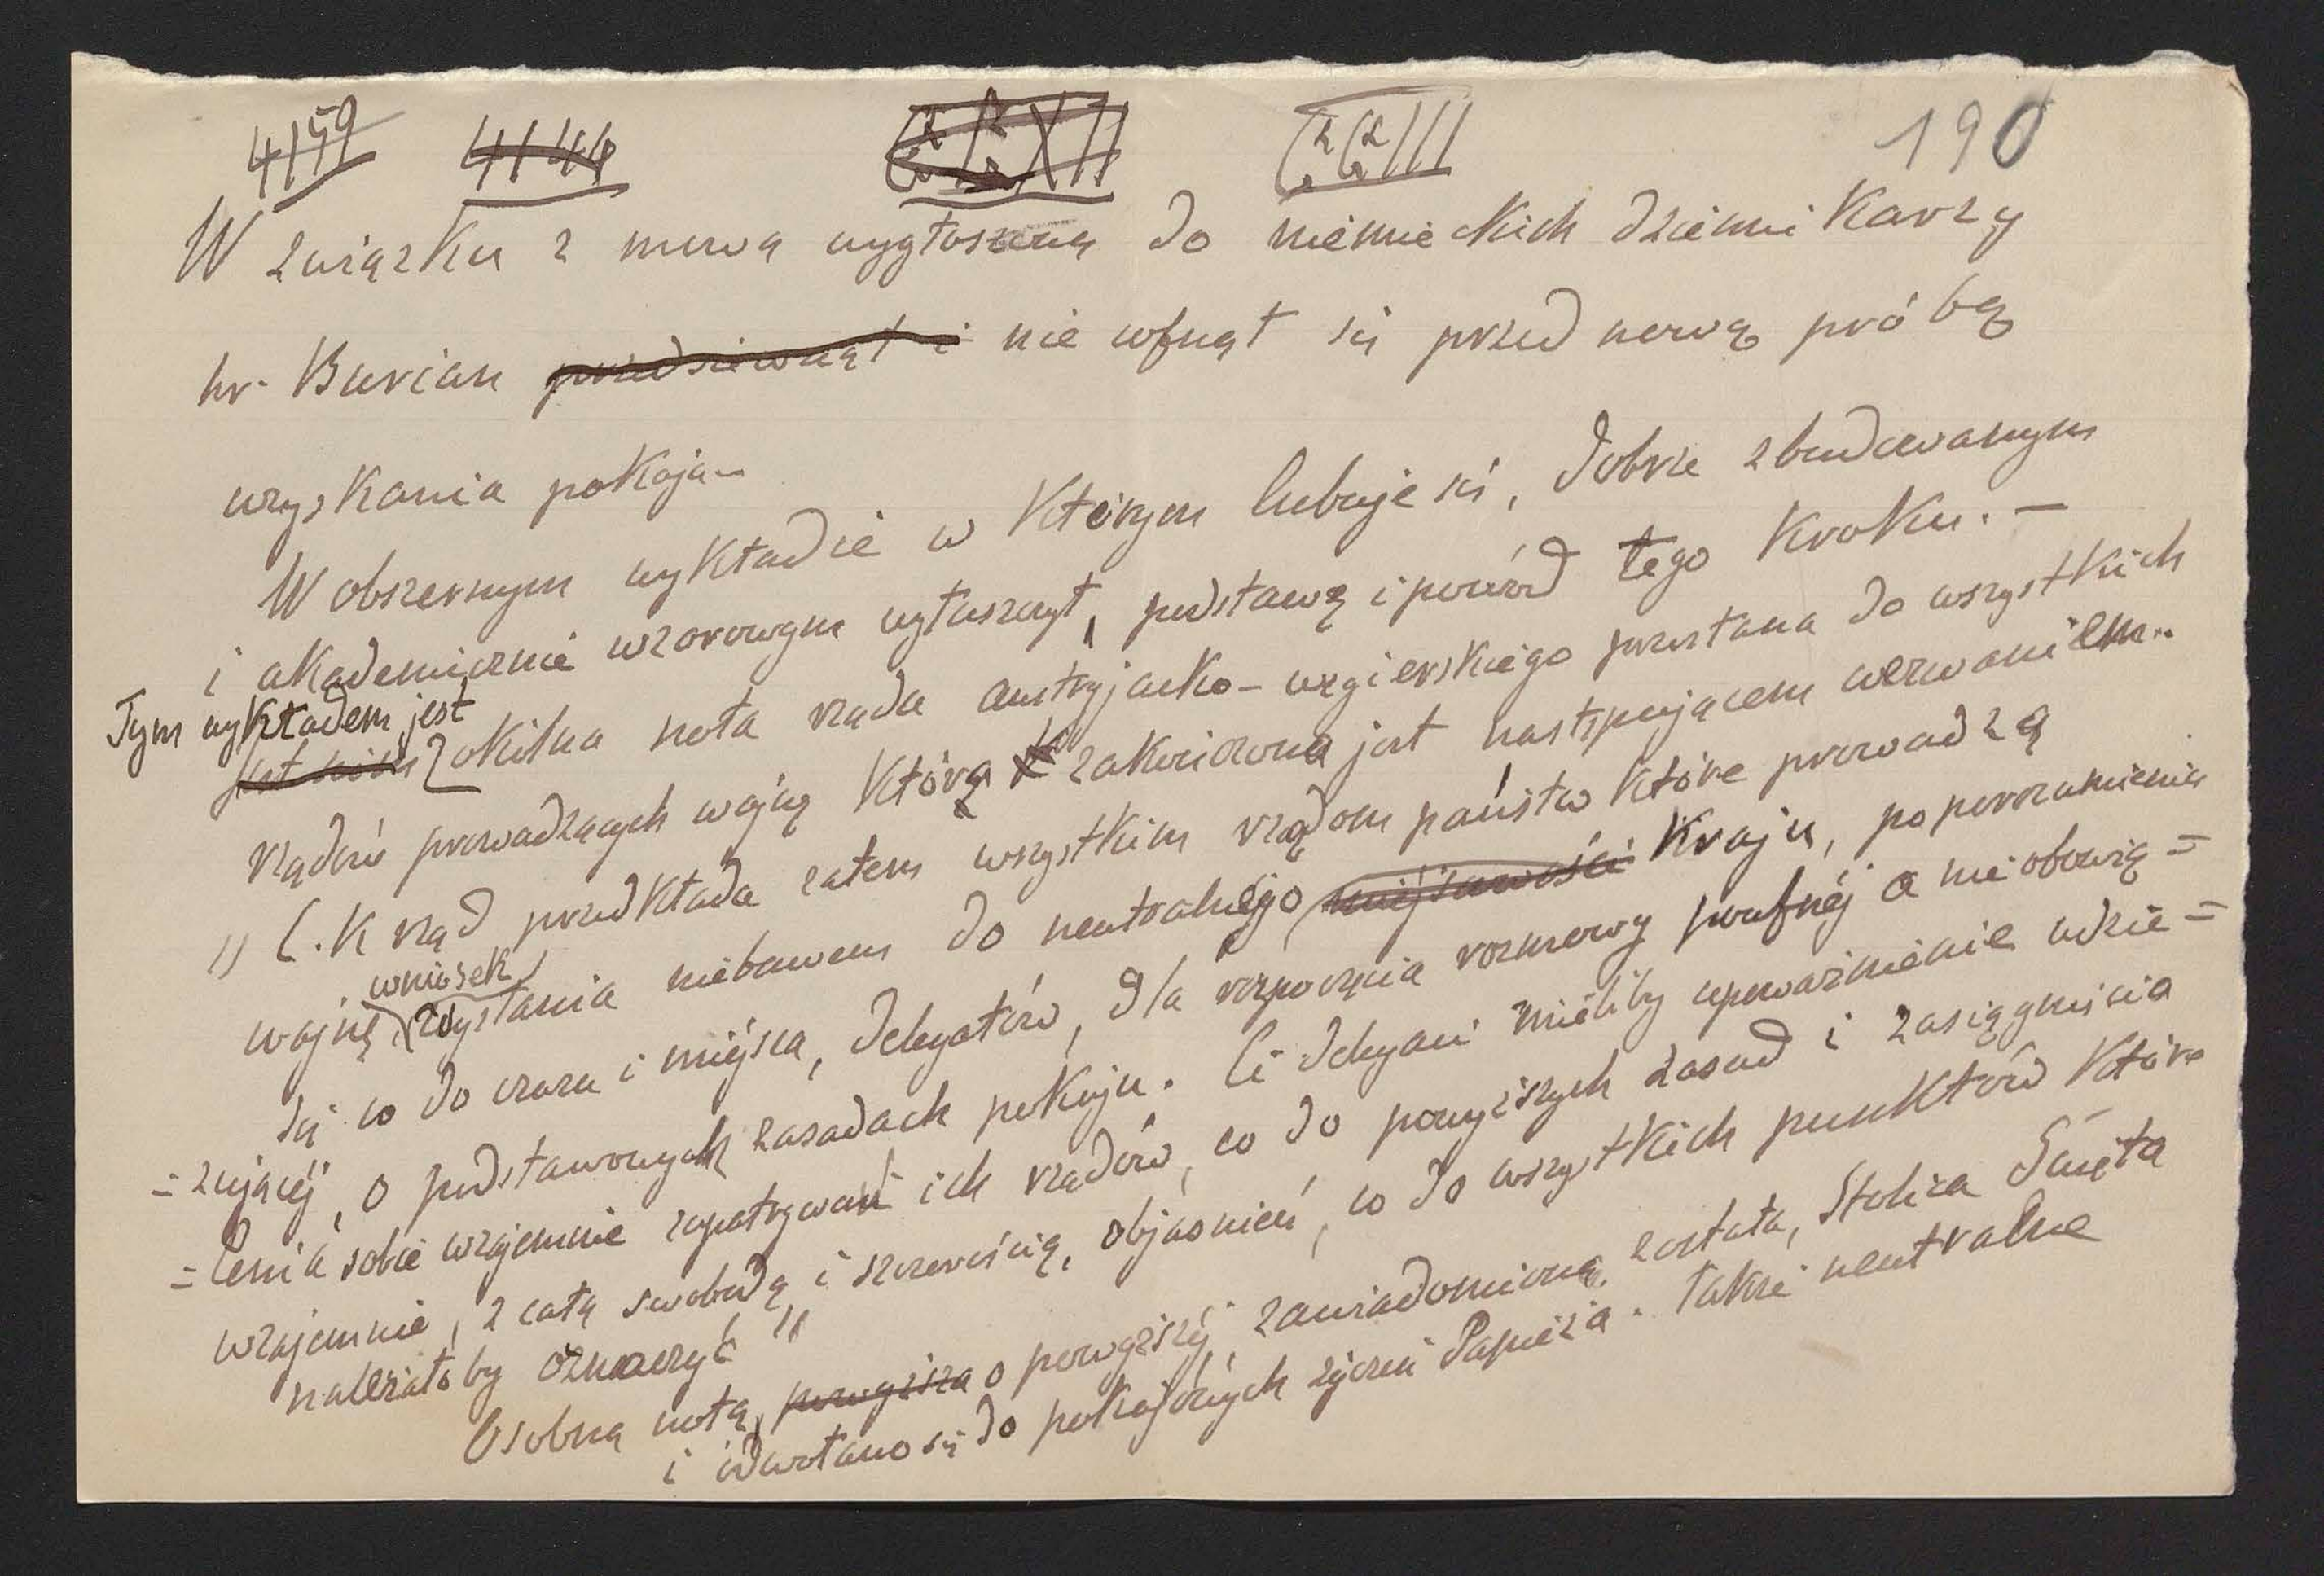 4/59 4/46 190
W związku z mową wygłoszoną do niemieckich dziennikarzy
hr. Burian przedsiewziął i nie cofnął się przed nową próbą
uzyskania pokoju..
W obszernym wykładzie w którym lubuje się, dobrze zbudowanym
i akademicznie wzorowym ogłaszczył, podstawę i powód tego kroku. —
Tym wykładem jest
jest nim okólna nota rządu austryjacko-węgierskiego przesłana do wszystkich
rządów prowadzących wojnę którą zakończona jest następującem wezwaniem..
„ C. K rząd przedkłada zatem wszystkim rządom państw które prowadzą
wniosek
wojnę, wysłania niebawem do neutralnego miejscowości kraju, po porozumieniu
się co do czasu i miejsca, delegatów, dla rozpoczęcia rozmowy poufnej a nie obowią=
=zującej, o podstawowych zasadach pokoju. Ci delegaci mieliby upoważnienie udzie=
=lenia sobie wzajemnie zapatrywań ich rządów, co do powyższych zasad i zasiągnięcia
wzajemnie, z całą swobodą i szczerością, objaśnień, co do wszystkich punktów które
należałoby oznaczyć "
Osobną notą powyższa o powyższej, zawiadomioną została, Stolica Święta
i odwołano się do pokojowych życzeń Papieża. Także neutralne